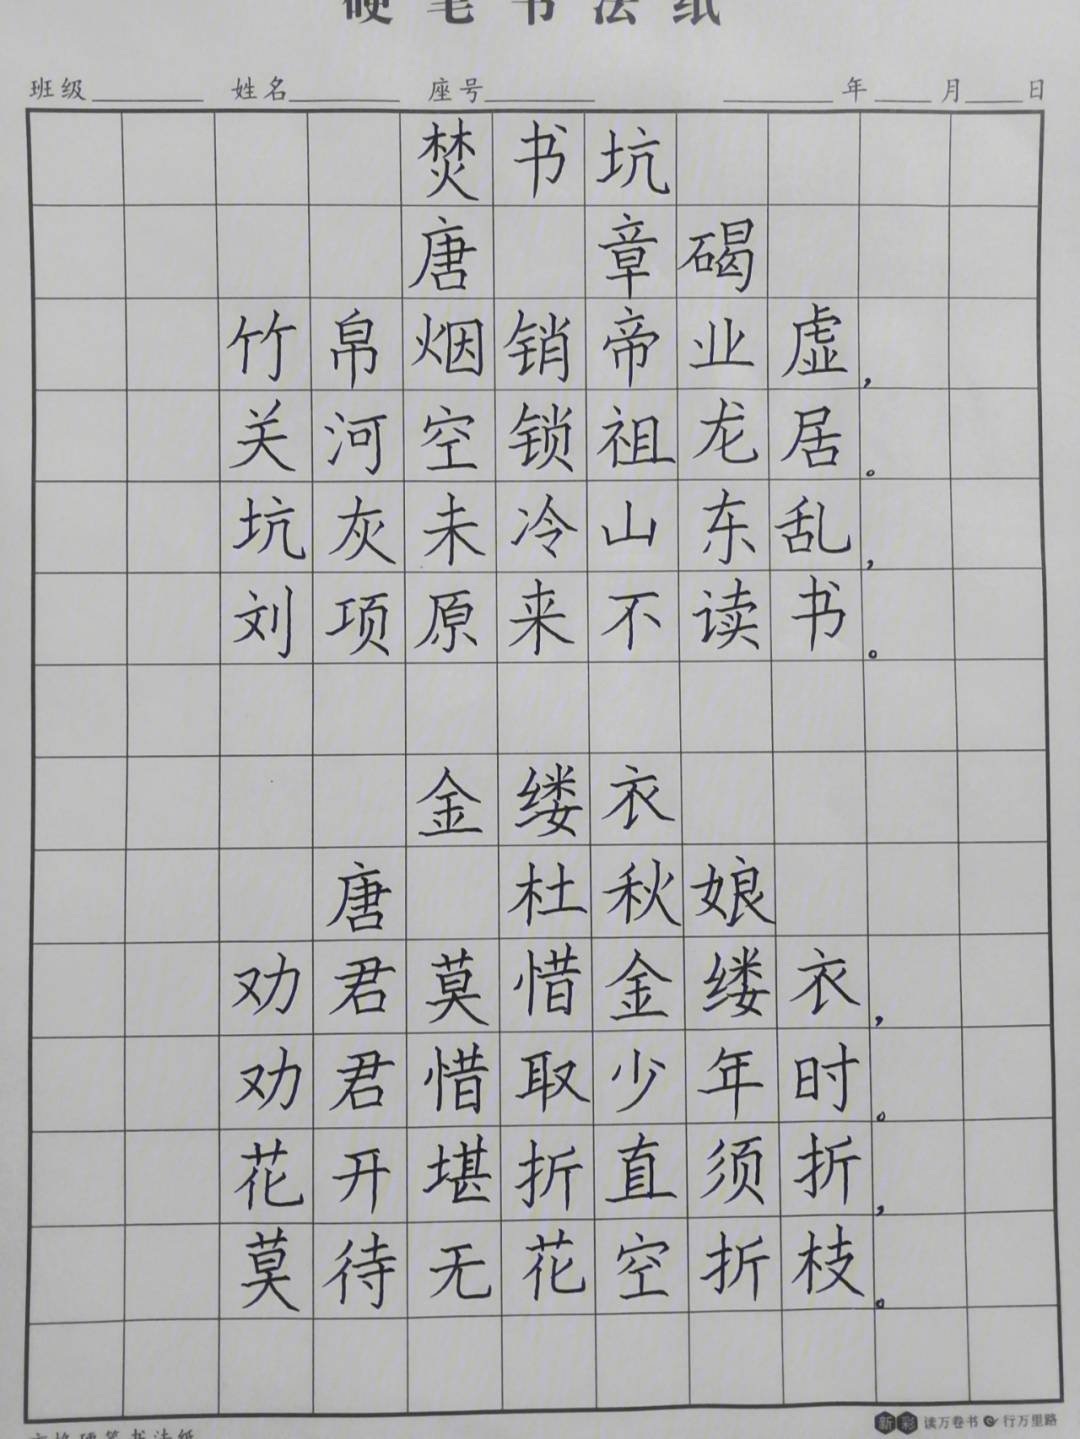 硬笔书法纸
班级 姓名 座号 年 月 日
焚书坑
唐 章碣
竹帛烟销帝业虚，
关河空锁祖龙居。
坑灰未冷山东乱，
刘项原来不读书。
金缕衣
唐 杜秋娘
劝君莫惜金缕衣，
劝君惜取少年时。
花开堪折直须折，
莫待无花空折枝。
新彩 读万卷书 行万里路
方格硬笔书法纸